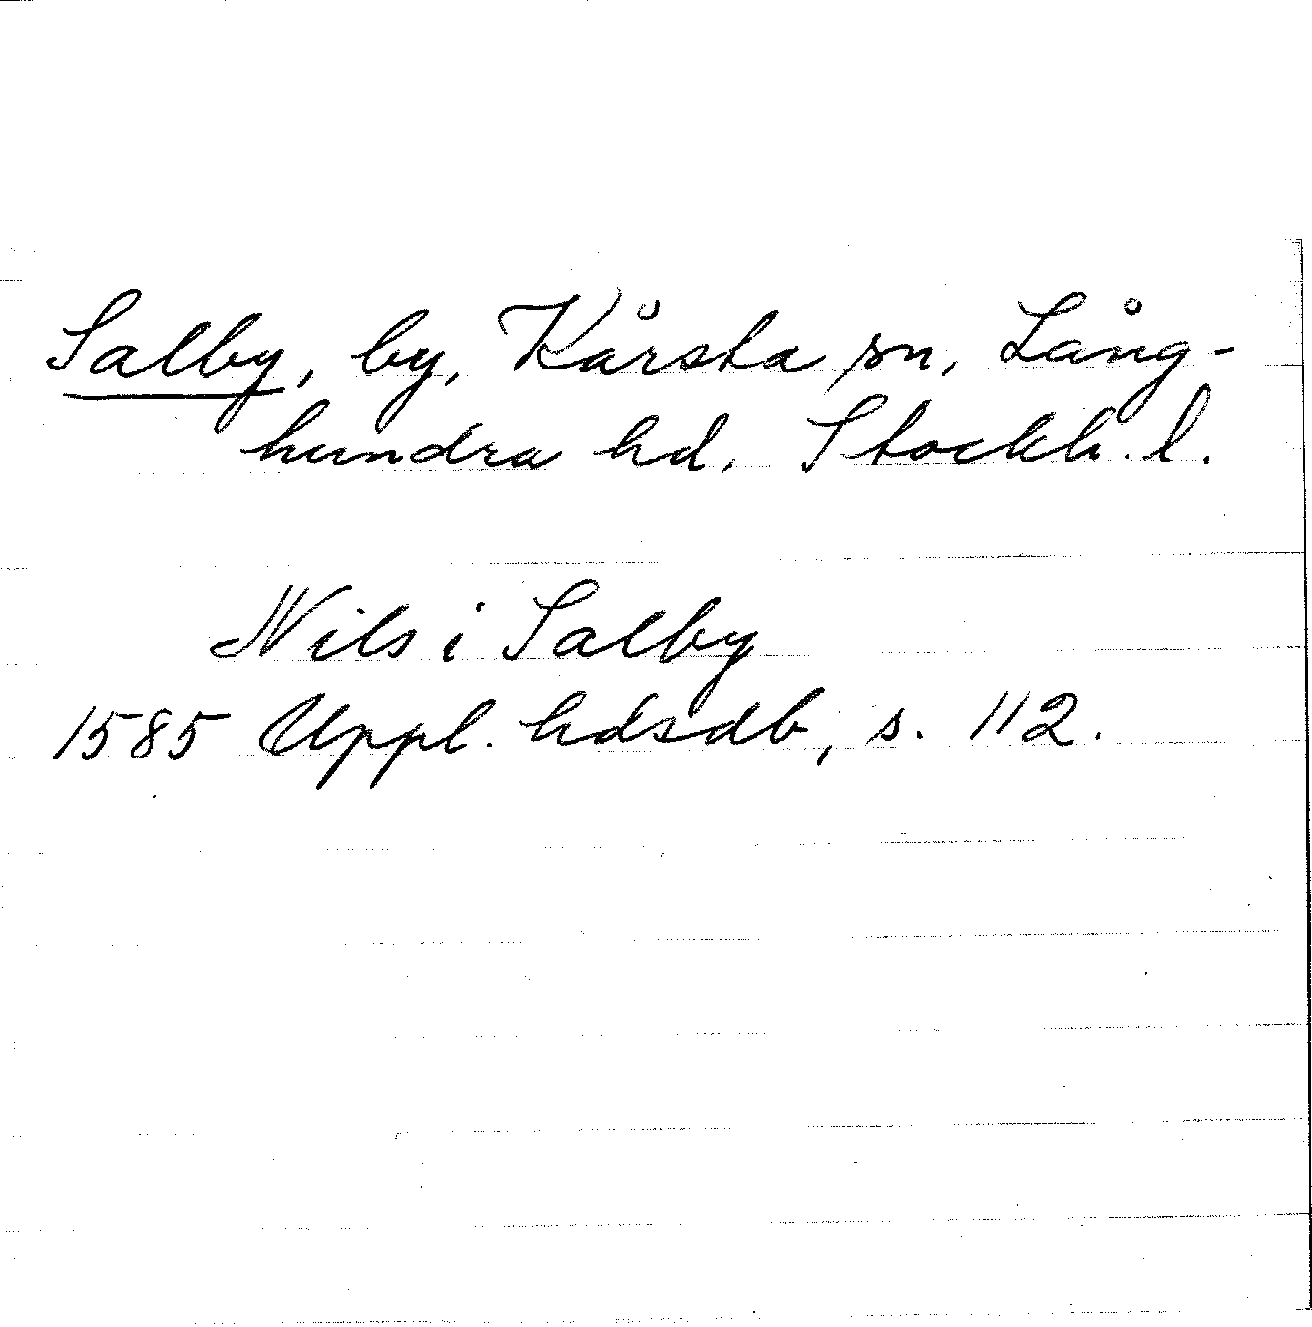 Salby, by, Kårsta sn, Lång-
hundra hd. Stockh. l.
Nils i Salby
1585 Uppl. hdsdb, s. 112.